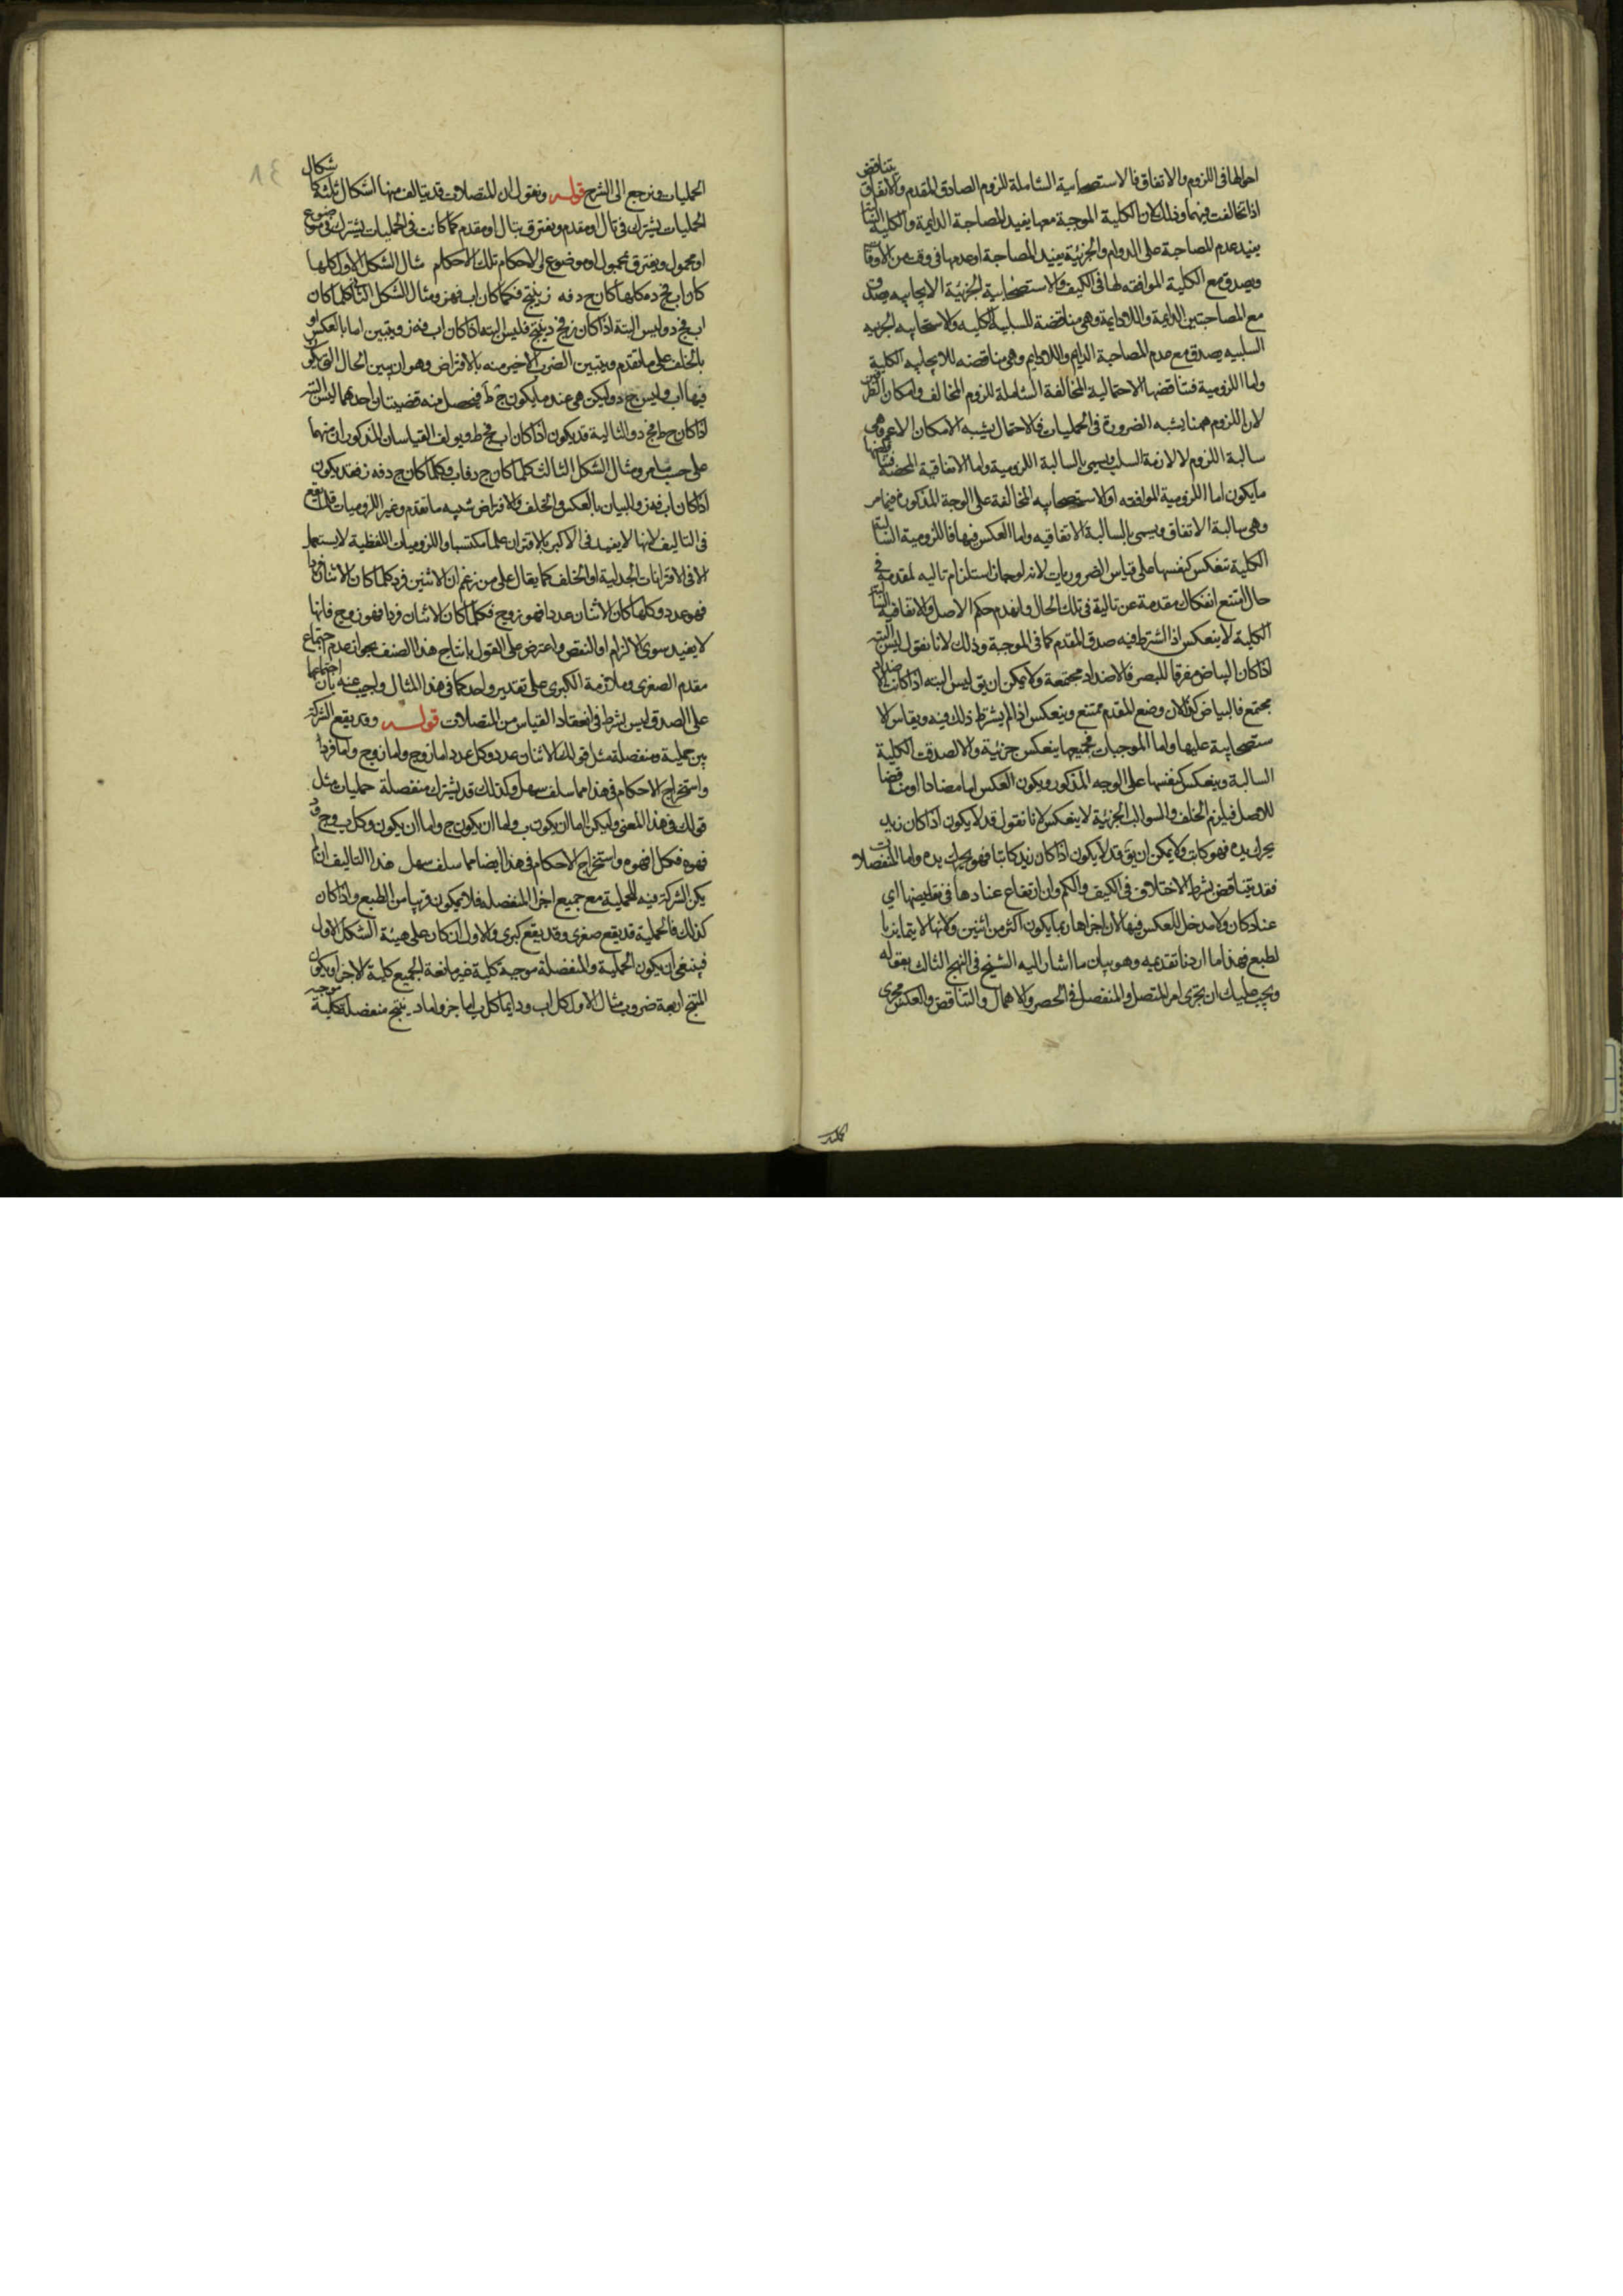 احوالها فى اللزوم والاتفاق فالاستصحابية الشاملة للزوم الصادق المقدم والاتفاق يتناقض
اذا تخالفت فيهما وذلك لان الكلية الموجبة معها يفيد المصاحبة الدايمة والكلية السالبة
يفيد عدم المصاحبة على الدوام والجزئية يفيد المصاحبة او عدمها فى وقت من الاوقات
ويصدق مع الكلية الموافقه لها فى الكيف والاستصحابية الجزئية الايجابيه يصدق
مع المصاحبتين الدايمة واللادايمة وهى مناقضة للسلبية الكليه والاستصحابيه الجزئيه
السلبيه يصدق مع عدم المصاحبة الدايم واللادايم وهى مناقضه للايجابيه الكلية
واما اللزومية فتناقضها الاحتمالية المخالفة الشاملة للزوم المخالف وامكان الطرفين
لان اللزوم ههنا يشبه الضرورة فى الحمليات فالاحتمال يشبه الامكان الاعم وهى
سالبة اللزوم لا لازمة السلب ويسمى بالسالبة اللزومية واما الاتفاقية المحضة فيناقضها
مايكون اما اللزومية الموافقه او الاستصحابيه المخالفة على الوجه المذكور فيما مر
وهى سالبة الاتفاق ويسمى بالسالبة الاتفاقيه واما العكس فيها فاللزومية السالبة
الكلية تنعكس كنفسها على قياس الضروريات لانه لو جاز استلزام تاليه لمقدمه فى
حال امتنع انفكاك مقدمة عن تالية فى تلك الحال وانهدم حكم الاصل والاتفاقية السالبة
الكلية لا ينعكس اذا اشترط فيه صدق المقدم كما فى الموجبة وذلك لانا نقول ليس البته
اذا كان البياض مفرقا للبصر فالاضداد مجتمعة ولا يمكن ان يق ليس البته اذا كانت الاضداد
مجتمع فالبياض كذا لان وضع المقدم ممتنع وينعكس اذا لم يشرط ذلك فيه ويقاس الا
ستصحابية عليها واما الموجبات فجميعها ينعكس جزئية والا لصدقت الكلية
السالبة وينعكس كنفسها على الوجه المذكور ويكون العكس اما مضادا او مناقضا
للاصل فيلزم الخلف والسوالب الجزئية لا ينعكس لانا نقول قد لا يكون اذا كان زيد
يحرك يده فهو كاتب ولا يمكن ان يق قد لا يكون اذا كان زيد كاتبا فهو يحرك يده واما المنفصلات
فقد يتناقض بشرط الاختلاف فى الكيف والكم وان ارتفاع عنادها فى نقايضها اى
عناد كان ولا مدخل للعكس فيها لان اجزاها ربما يكون اكثر من اثنين ولانها لا يتمايز با
لطبع فهذا ما اردنا تقديمه وهو بيان ما اشار اليه الشيخ فى النهج الثالث بقوله
ويجب عليك ان يجرى امر المتصل والمنفصل فى الحصر والاهمال والتناقض والعكس مجرى
الحمليات ونرجع الى الشرح قوله ونقول ان المتصلات قد يتالف منها اشكال ثلثة كاشكال
الحمليات يشترك فى تال او مقدم ويفترق بتال او مقدم كما كانت فى الحمليات يشترك فى موضوع
او محمول ويفترق بمحمول او موضوع والاحكام تلك الاحكام مثال الشكل الاول كلما
كان اب فج د وكلما كان ج د فه ز ينتج فكلما كان اب فه ز ومثال الشكل الثانى كلما كان
اب فج د وليس البتة اذا كان ه ز فج د ينتج فليس البته اذا كان اب فه ز ويتبين اما بالعكس او
بالخلف على ما تقدم ويتبين الضرب الاخير منه بالافتراض وهو ان يبين الحال التى يكون
فيها اب وليس ج د وليكن هى عند ما يكون ج ط فيحصل منه قضيتان احدهما ليس البته
اذا كان ح ط فج د والثالية قد يكون اذا كان اب فح ط ويولف القياسان المذكوران منهما
على حسب ما مر ومثال الشكل الثالث كلما كان ج د فاب وكلما كان ج د فه ز فقد يكون
اذا كان اب فه ز والبيان بالعكس والخلف والافتراض شبيه ما تقدم وغير اللزوميات قل يقع
فى التاليف لانها لا يفيد فى الاكبر بالاقتران علما مكتسبا واللزوميات اللفظية لا يستعمل
الا فى الاقترانات الجدلية او الخلف كما يقال على من زعم ان الاثنين فرد كلما كان الاثنان فردا
فهو عدد وكلما كان الاثنان عددا فهو زوج فكلما كان الاثنان فردا فهو زوج فانها
لا يفيد سوى الالزام او النقض واعترض على القول بانتاج هذا الصنف بجواز عدم اجتماع
مقدم الصغرى وملازمة الكبرى على تقدير واحد كما فى هذا المثال واجيب عنه بان اجتماعهما
على الصدق ليس بشرط فى انعقاد القياس من المتصلات قوله وقد يقع الشركة
بين حملية ومنفصلة مثل قولك الاثنان عدد وكل عدد اما زوج واما زوج واما فرد
واستخراج الاحكام فى هذا مما سلف سهل وكذلك قد يشترك منفصلة حمليات مثل
قولك فى هذا المعنى وليكن اما ان يكون ب واما ان يكون ج واما ان يكون د وكل ب وج ود
فهو ه فكل ا فهو ه واستخراج الاحكام فى هذا ايضا مما سلف سهل هذا التاليف اما
يكن الشركة فيه للحملية مع جميع اجزا المنفصله فلا يكون قريبا من الطبع واذا كان
كذلك فالحملية قد يقع صغرى وقد يقع كبرى والاول ان كان على هيئة الشكل الاول
فينبغى ان يكون الحملية والمنفصلة موجبة كلية غير مانعة الجميع كلية الاجزا ويكون
المنتج اربعة ضروب مثال الاول كل اب ودايما كل ب اما ج واما د ينتج منفصلة كلية موجبه